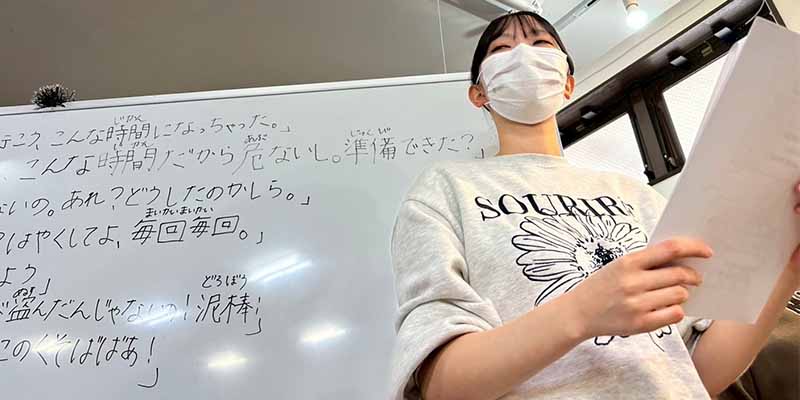 こんな時間になっちゃった。」
じかん
こんな時間だから危ないし。準備できた?」
じかん あぶ じゅんび
ないの。あれ?どうしたのかしら。」
はやくしてよ、毎回毎回。」
まいかいまいかい
よう」
盗んだんじゃないの!泥棒!」
ぬす どろぼう
このくそばばあ!」
SOURIR